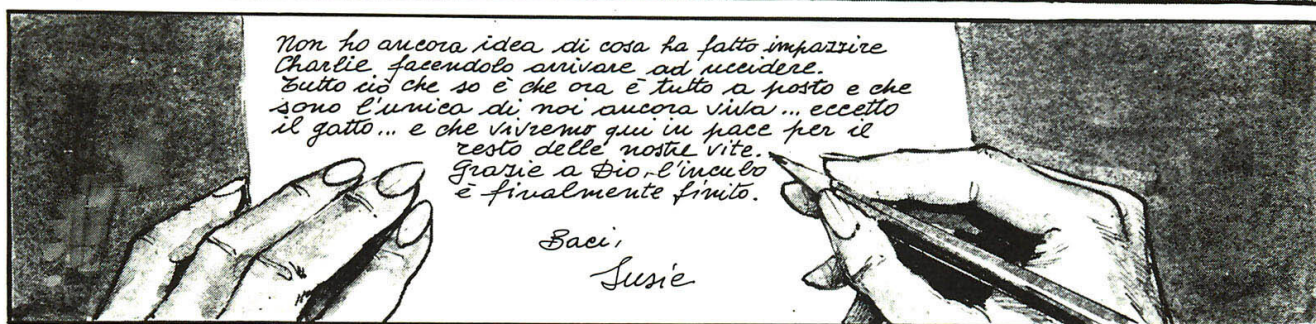 Non ho ancora idea di cosa ha fatto impazzire
Charlie facendolo arrivare ad uccidere.
Tutto ciò che so è che ora è tutto a posto e che
sono l'unica di noi ancora viva... eccetto
il gatto... e che vivremo qui in pace per il
resto delle nostre vite.
Grazie a Dio, l'incubo
è finalmente finito.
Baci,
Susie